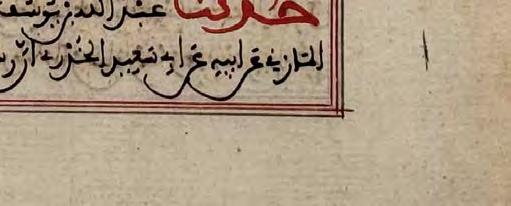 حدثنا عبد الله بن يوسف
المازني عن ابيه عن ابي سعيد الخدري ان رس